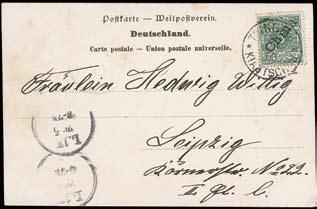 Postkarte — Weltpostverein.
Deutschland.
Carte postale — Union postale universelle.
China
Fräulein Hedwig Wittig
Leipzig
Körnerstr No 22.
II. Et. l.